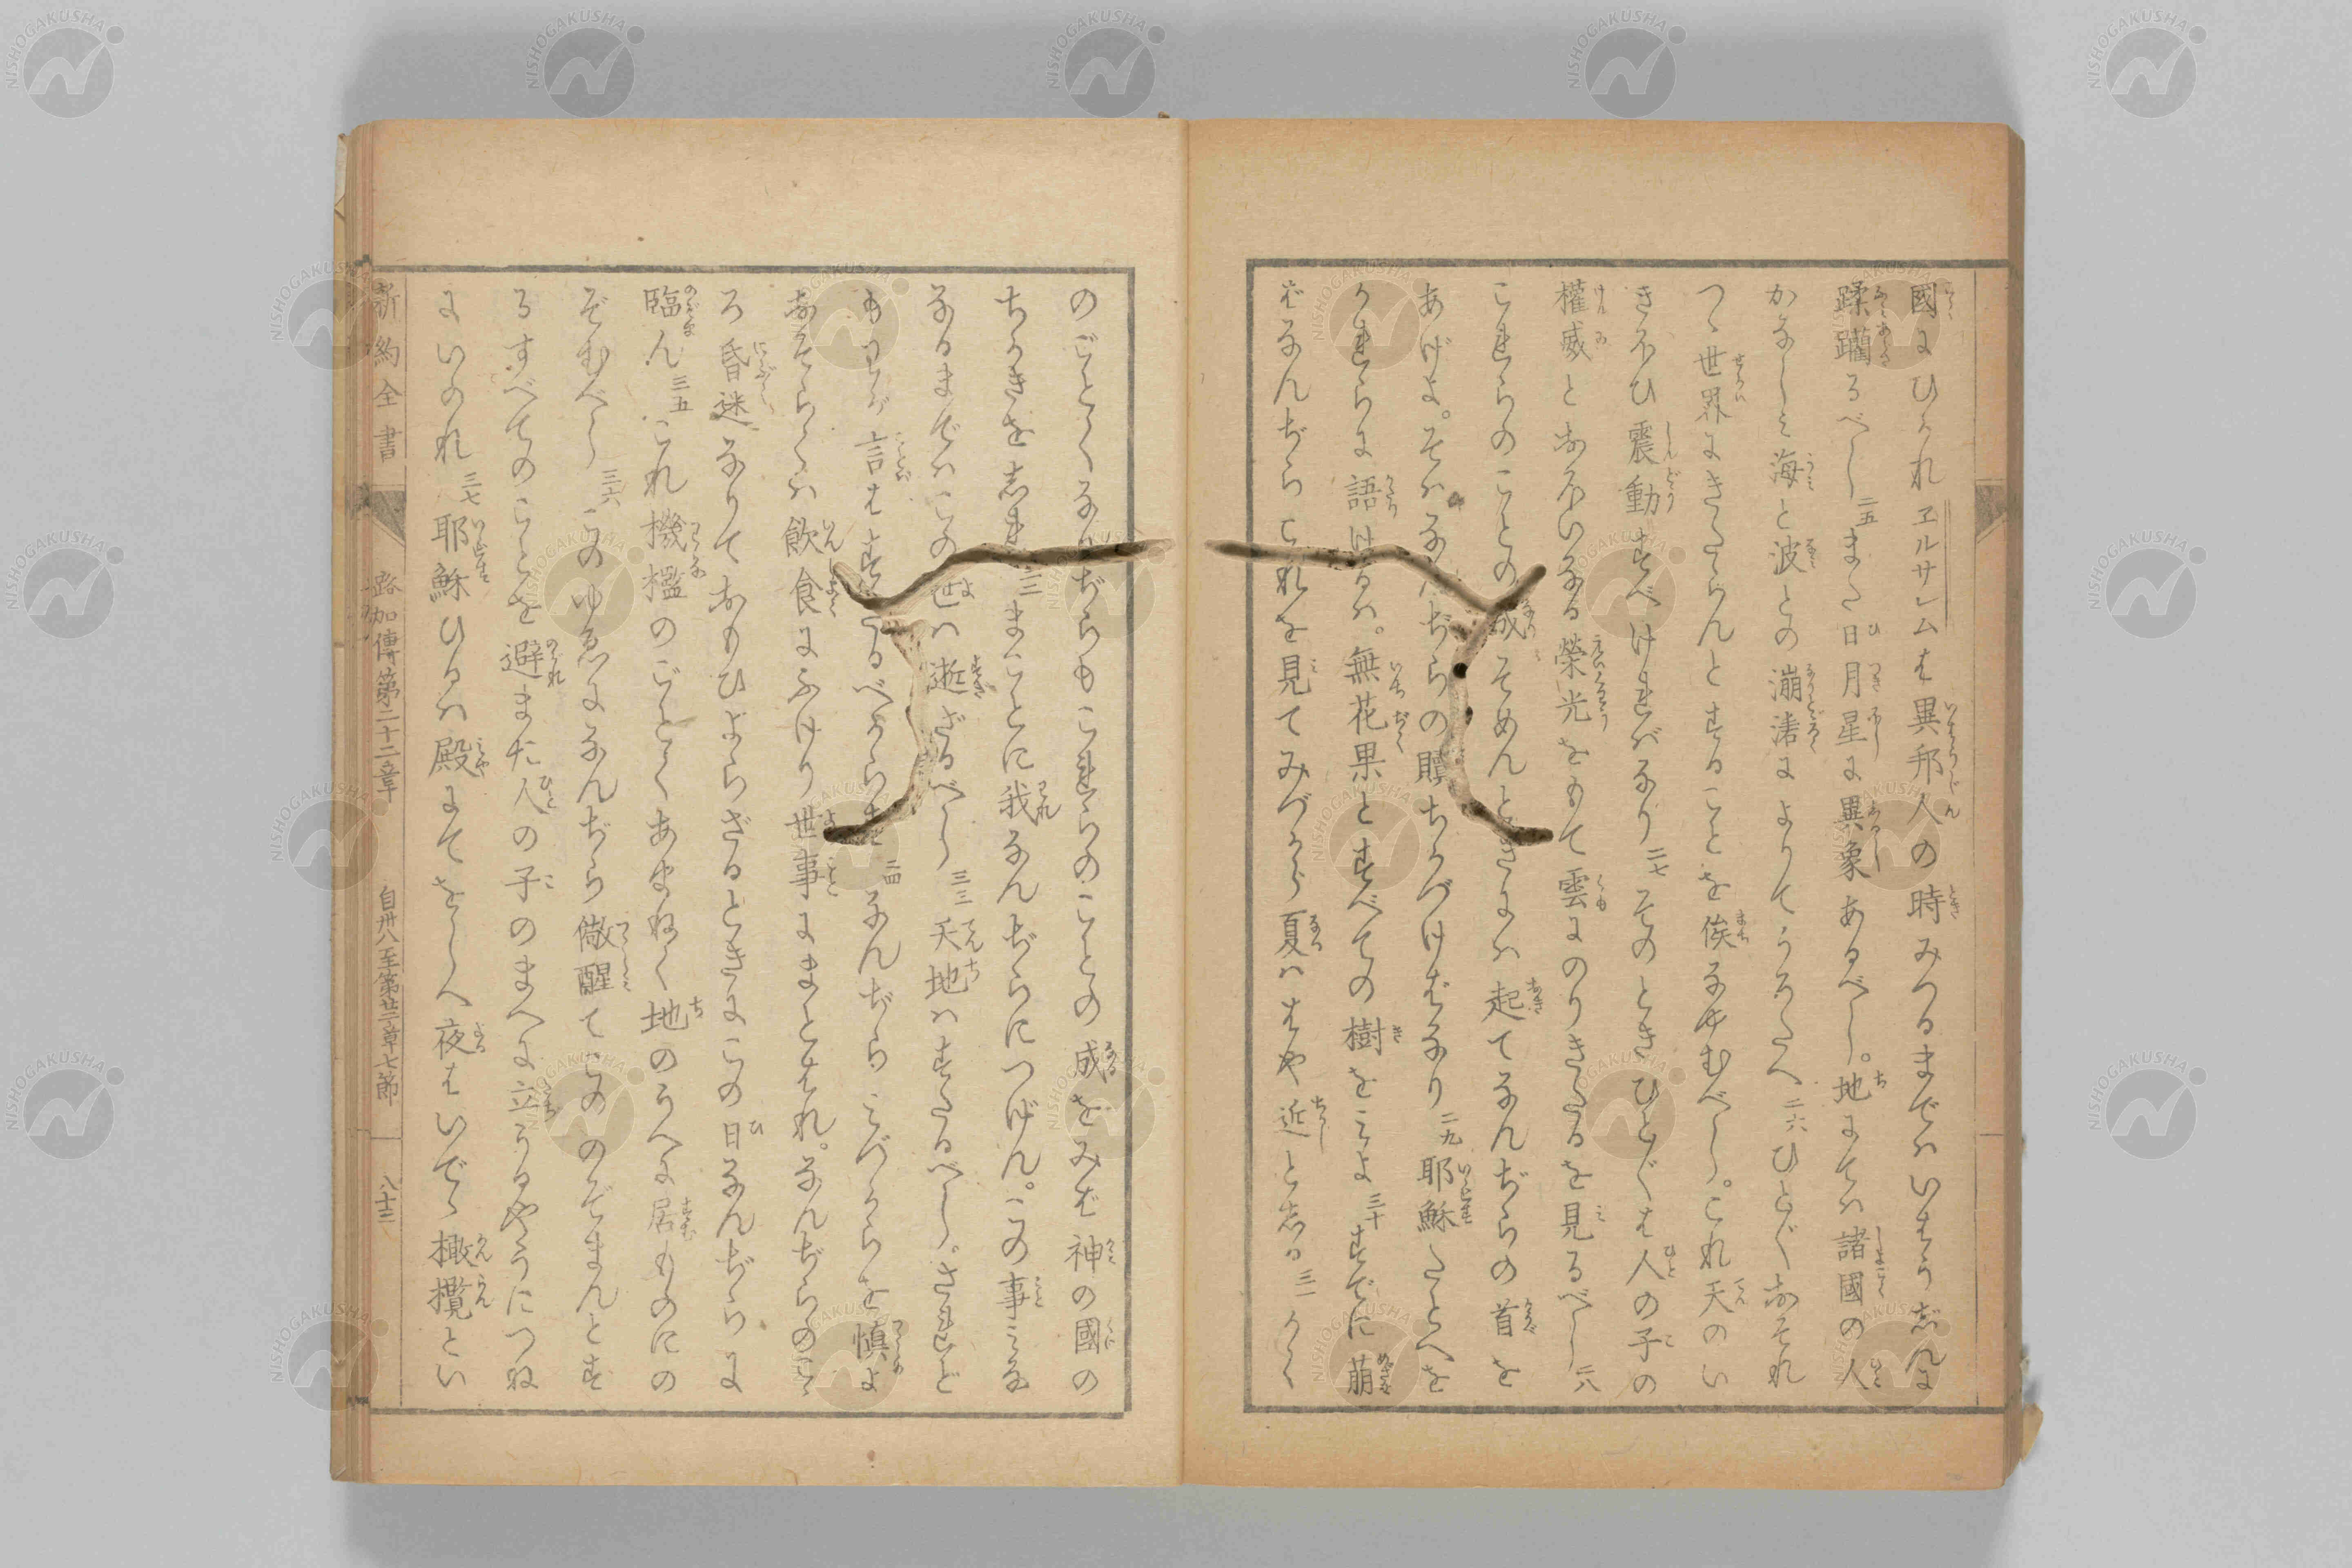 國にひかれヱルサレムは異邦人の時みつるまでハいはうじんに
蹂躙るべし二五また日月星に異象あるべし。地にてハ諸國の人
かなしミ海と波との漰濤によりてうろたへ二六ひとびとおそれ
つゝ世界にきたらんとすることを俟なやむべし。これ天のい
きほひ震動すべければなり二七そのときひとびとは人の子の
權威とおほいなる榮光をもて雲にのりきたるを見るべし二八
これらのことの成そめんときにハ起てなんぢらの首を
あげよ。そハなんぢらの贖ちかづけばなり二九耶穌たとへを
かれらに語けるハ。無花果とすべての樹をミよ三十すでに萠
ばなんぢらこれを見てみづから夏ハはや近としる三一かく
のごとくなんぢらもこれらのことの成をみば神の國の
ちかきをしれ三二まことに我なんぢらにつげん。この事ミな
なるまでハこの世ハ逝ざるべし三三天地ハすたるべし。されど
もわが言はすたるべからず三四なんぢらミづからを慎よ
おそらくハ飲食にふけり世事にまとはれ。なんぢらのこゝ
ろ昏迷なりておもひよらざるときにこの日なんぢらに
臨ん三五これ機檻のごとくあまねく地のうへに居ものにの
ぞむべし三六このゆゑになんぢら儆醒てこののぞまんとす
るすべてのことを避また人の子のまへに立うるやうにつね
にいのれ三七耶穌ひるハ殿にてをしへ夜はいでゝ橄欖とい
新約全書 路加傳第二十二章 自卅八至第廿二章七節 八十三